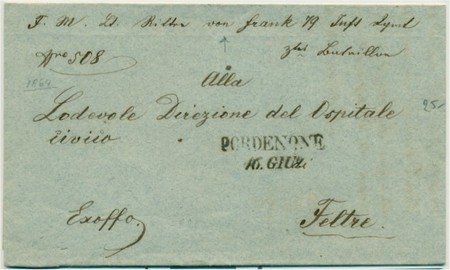 F. M. Lt Ritter von Frank 79 Inft
2tes Bataillon
Nro 508
Alla
1864
Lodevole Direzione del Ospitale
25.-
civico
PORDENONE
16. GIU
Exoffo.
Feltre.